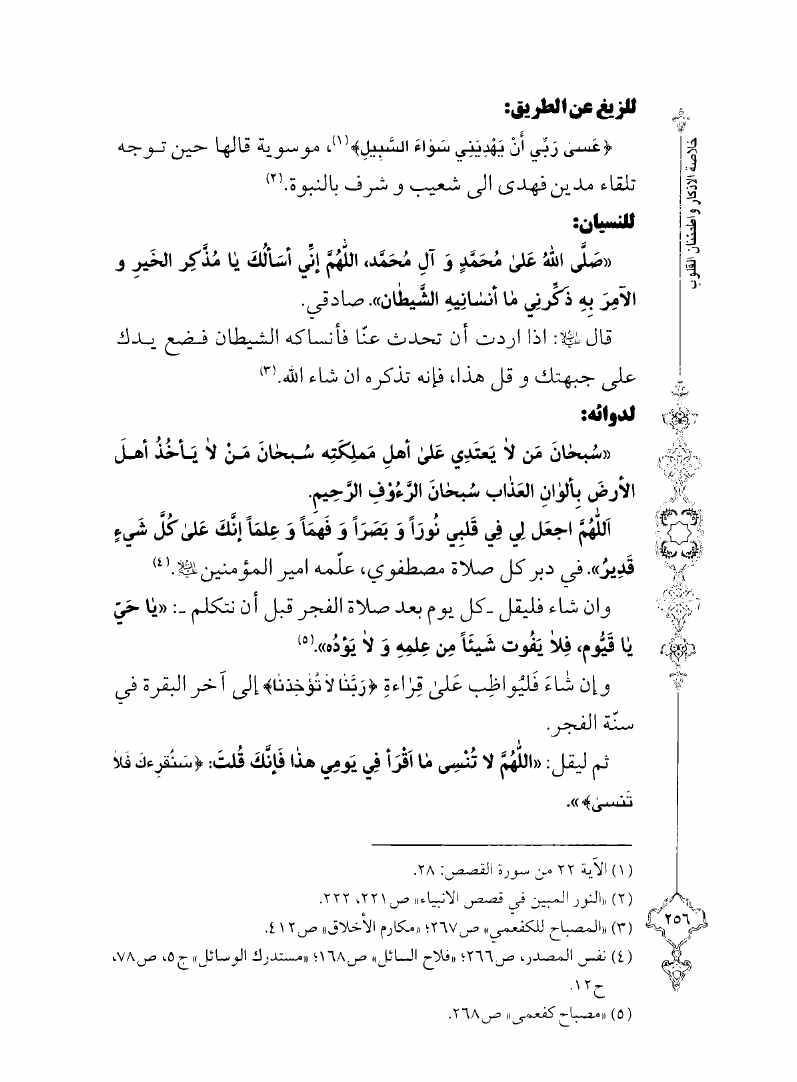 للزيغ عن الطريق:
﴿عَسىٰ رَبِّي أَنْ يَهْدِيَنِي سَوٰاءَ السَّبِيلِ﴾(١)، موسوية قالها حين توجه
تلقاء مدين فهدى الى شعيب و شرف بالنبوة.(٢)
للنسيان:
«صَلَّى اللهُ عَلىٰ مُحَمَّدٍ وَ آلِ مُحَمَّد، اللّٰهُمَّ إنِّي أسَألُكَ يٰا مُذَّكِر الخَيرِ و
الآمِرَ بِه ذَكِّرنِي مٰا أنسٰانِيهِ الشَّيطٰان». صادقي.
قال ﷺ: اذا اردت أن تحدث عنّا فأنساكه الشيطان فضع يدك
على جبهتك و قل هذا، فإنه تذكره ان شاء الله.(٣)
لدوائه:
«سُبحٰانَ مَن لاٰ يَعتَدِي عَلىٰ أهلِ مَملِكَتِه سُبحٰانَ مَنْ لاٰ يَأخُذُ أهلَ
الأرضَ بِألوٰانِ العَذٰاب سُبحٰانَ الرَّءُوْفِ الرَّحِيم.
اَللّٰهُمَّ اجعَل لِي فِي قَلبِي نُورَاً وَ بَصَرَاً وَ فَهمَاً وَ عِلمَاً إنَّكَ عَلىٰ كُلِّ شَيءٍ
قَدِيرٌ». في دبر كل صلاة مصطفوي، علّمه امير المؤمنين ﷺ.(٤)
وان شاء فليقل ـ كل يوم بعد صلاة الفجر قبل أن نتكلم ـ: «يٰا حَيّ
يٰا قَيُّوم، فِلاٰ يَفُوت شَيئَاً مِن عِلمِهِ وَ لاٰ يَؤدُه».(٥)
و إن شٰاءَ فَليُواظِب عَلىٰ قِرٰاءةِ ﴿رَبَّنٰا لاٰ تُؤخِذنٰا﴾ إلى آخر البقرة في
سنّة الفجر.
ثم ليقل: «اللّٰهُمَّ لاٰ تُنْسِى مٰا اَقْرَأ فِي يَومِي هذٰا فَإنَّكَ قُلتَ: ﴿سَنُقرِءكَ فَلاٰ
تَنسىٰ﴾».
(١) الآية ٢٢ من سورة القصص: ٢٨.
(٢) «النور المبين في قصص الانبياء» ص٢٢١، ٢٢٢.
(٣) «المصباح للكفعمي» ص٢٦٧؛ «مكارم الأخلاق» ص٤١٢.
(٤) نفس المصدر، ص٢٦٦؛ «فلاح السائل» ص١٦٨؛ «مستدرك الوسائل» ج٥، ص٧٨،
ح١٢.
(٥) «مصباح كفعمى» ص٢٦٨.
خلاصة الاذكار واطمئنان القلوب
٢٥٦